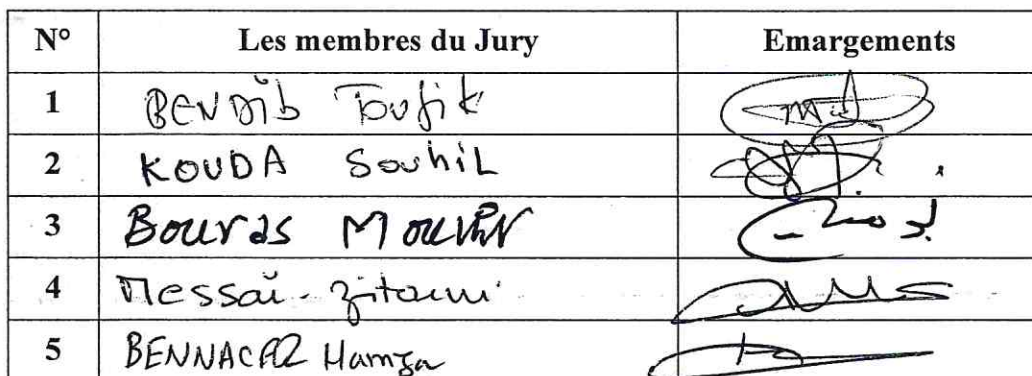 N° Les membres du Jury Emargements
1 BENDIB Toufik
2 KOUDA Souhil
3 Bouras Mounir
4 Messaï - Zitouni
5 BENNACER Hamza